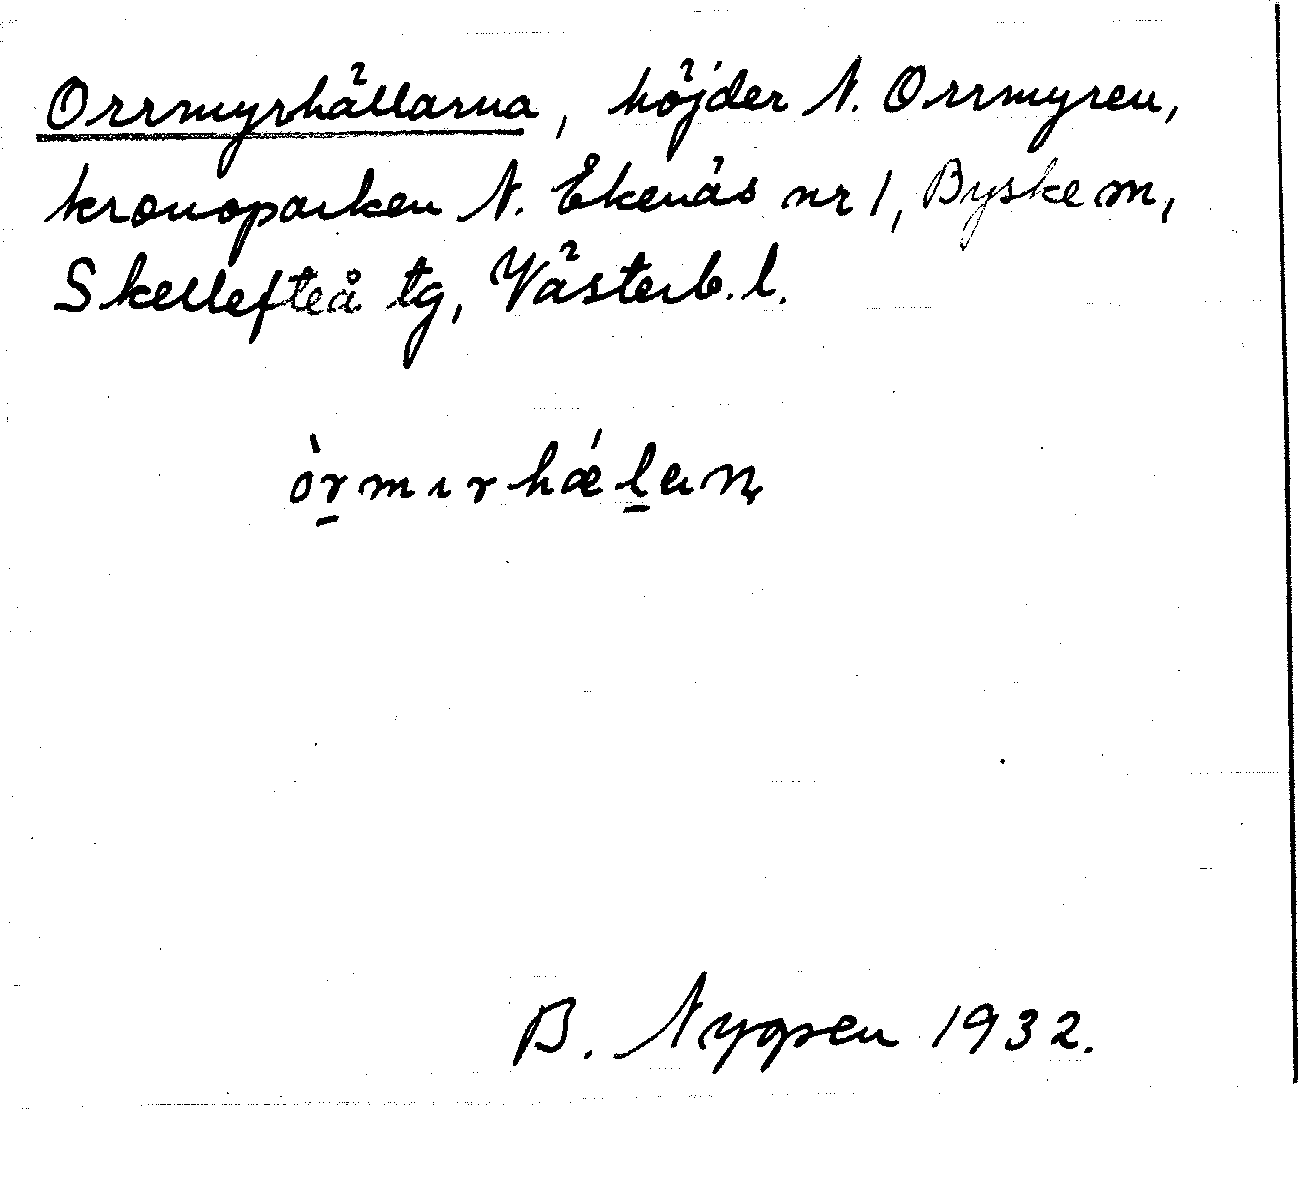 Orrmyrhällarna, höjder N. Orrmyren,
kronoparken N. Åkenäs nr 1, Byske m,
Skellefteå tg, Västerb. l.
òr̠mırhǽl̠aɳ
B. Nygren 1932.